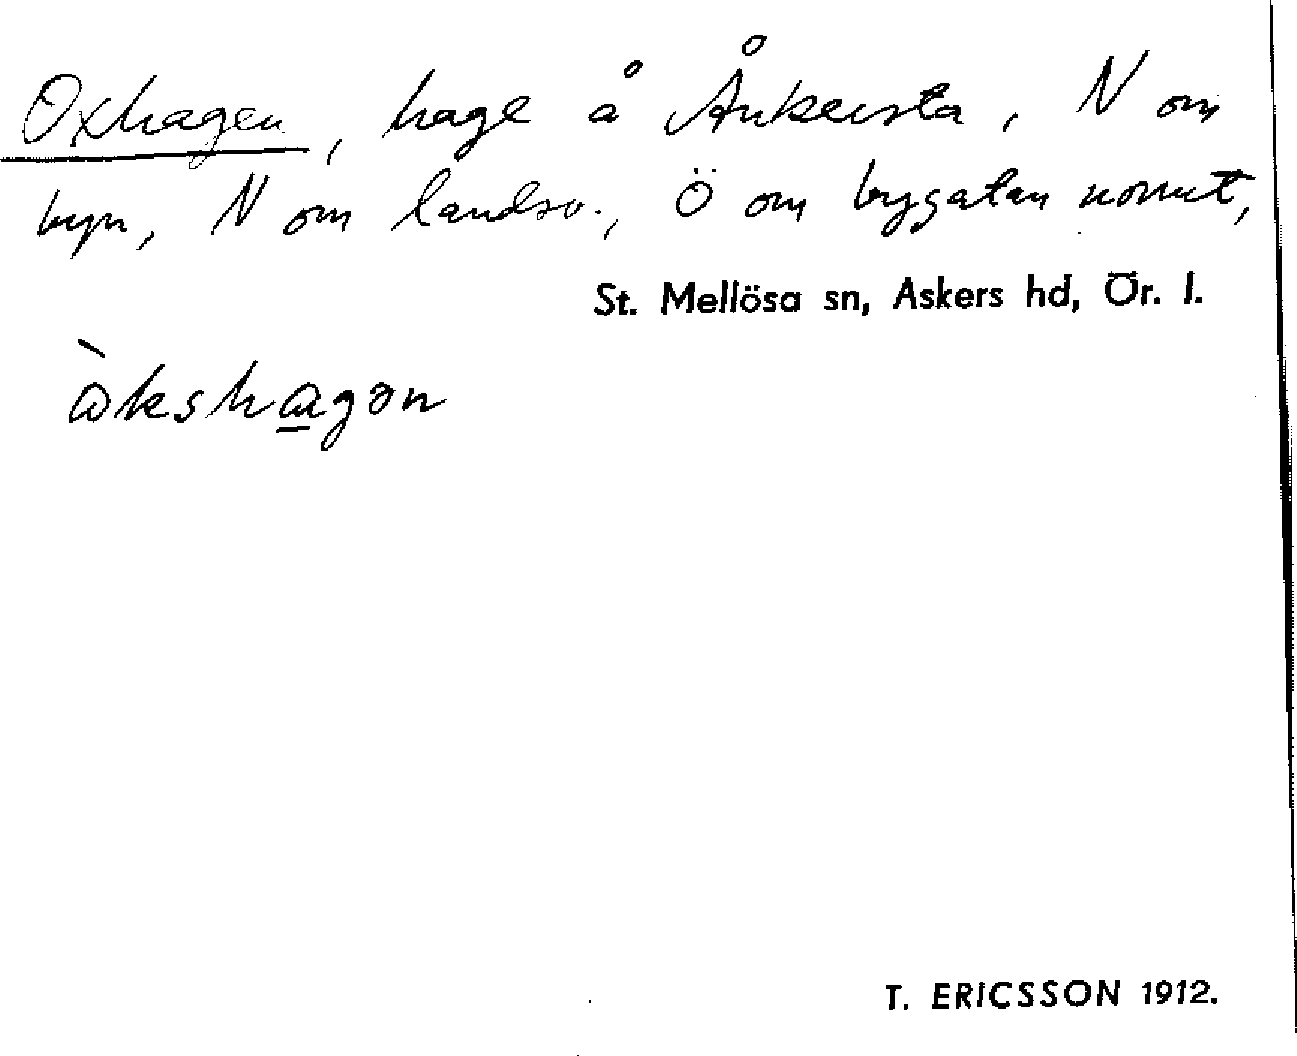 Oxhagen, hage å Ånkersta, N om
byn, N om landsv., Ö om bygatan norrut,
St. Mellösa sn, Askers hd, Ör. l.
ὰkshagən
T. ERICSSON 1912.